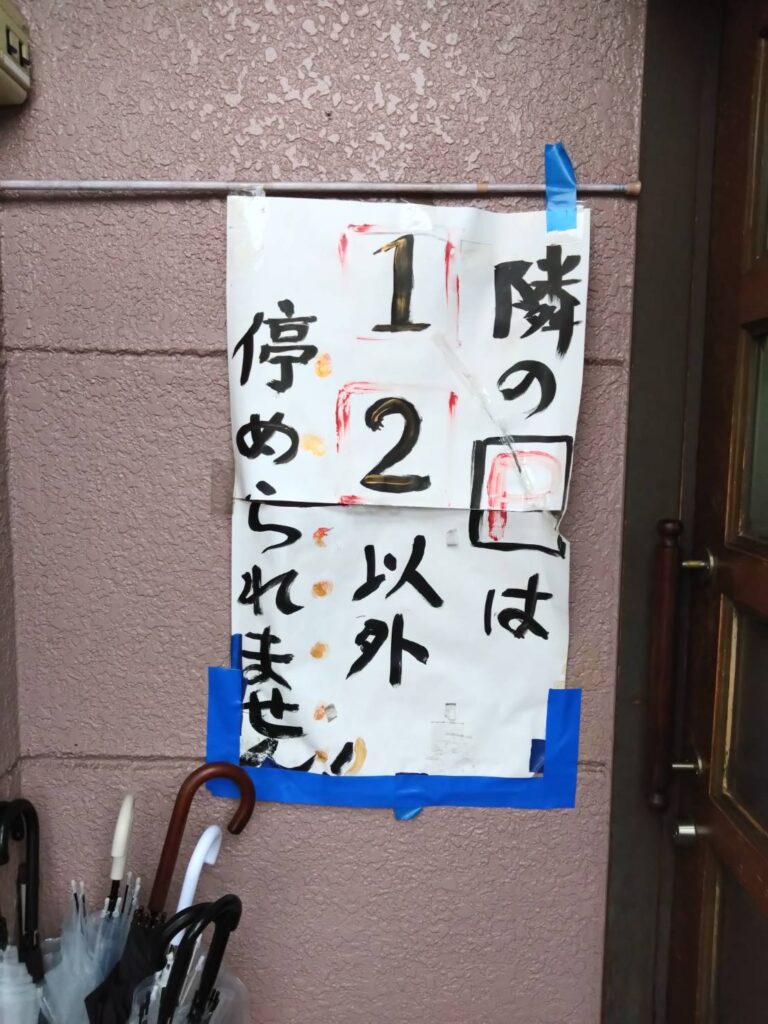 隣のPは
12以外
停められません